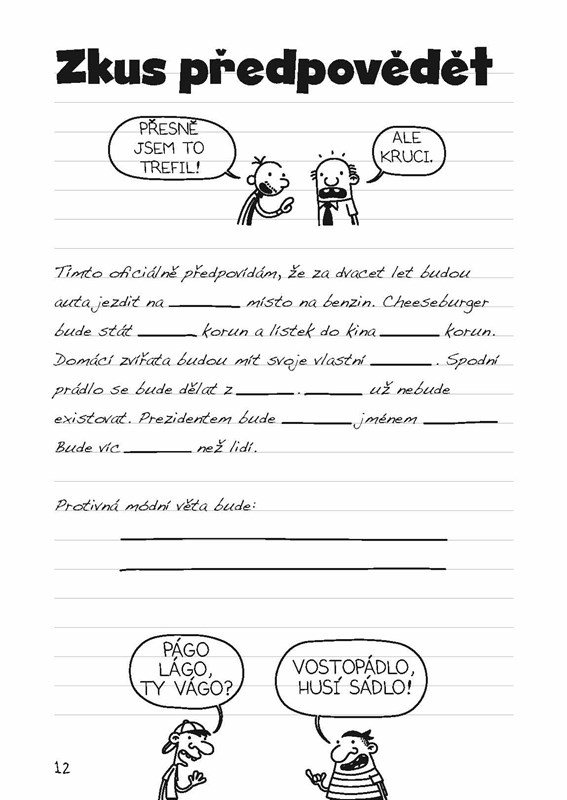 Zkus předpovědět
PŘESNĚ
JSEM TO
TREFIL!
ALE
KRUCI.
Tímto oficiálně předpovídám, že za dvacet let budou
auta jezdit na ________ místo na benzin. Cheeseburger
bude stát ________ korun a lístek do kina ________ korun.
Domácí zvířata budou mít svoje vlastní ________. Spodní
prádlo se bude dělat z ________. ________ už nebude
existovat. Prezidentem bude ________ jménem ________
Bude víc ________ než lidí.
Protivná módní věta bude:
PÁGO
LÁGO,
TY VÁGO?
VOSTOPÁDLO,
HUSÍ SÁDLO!
12